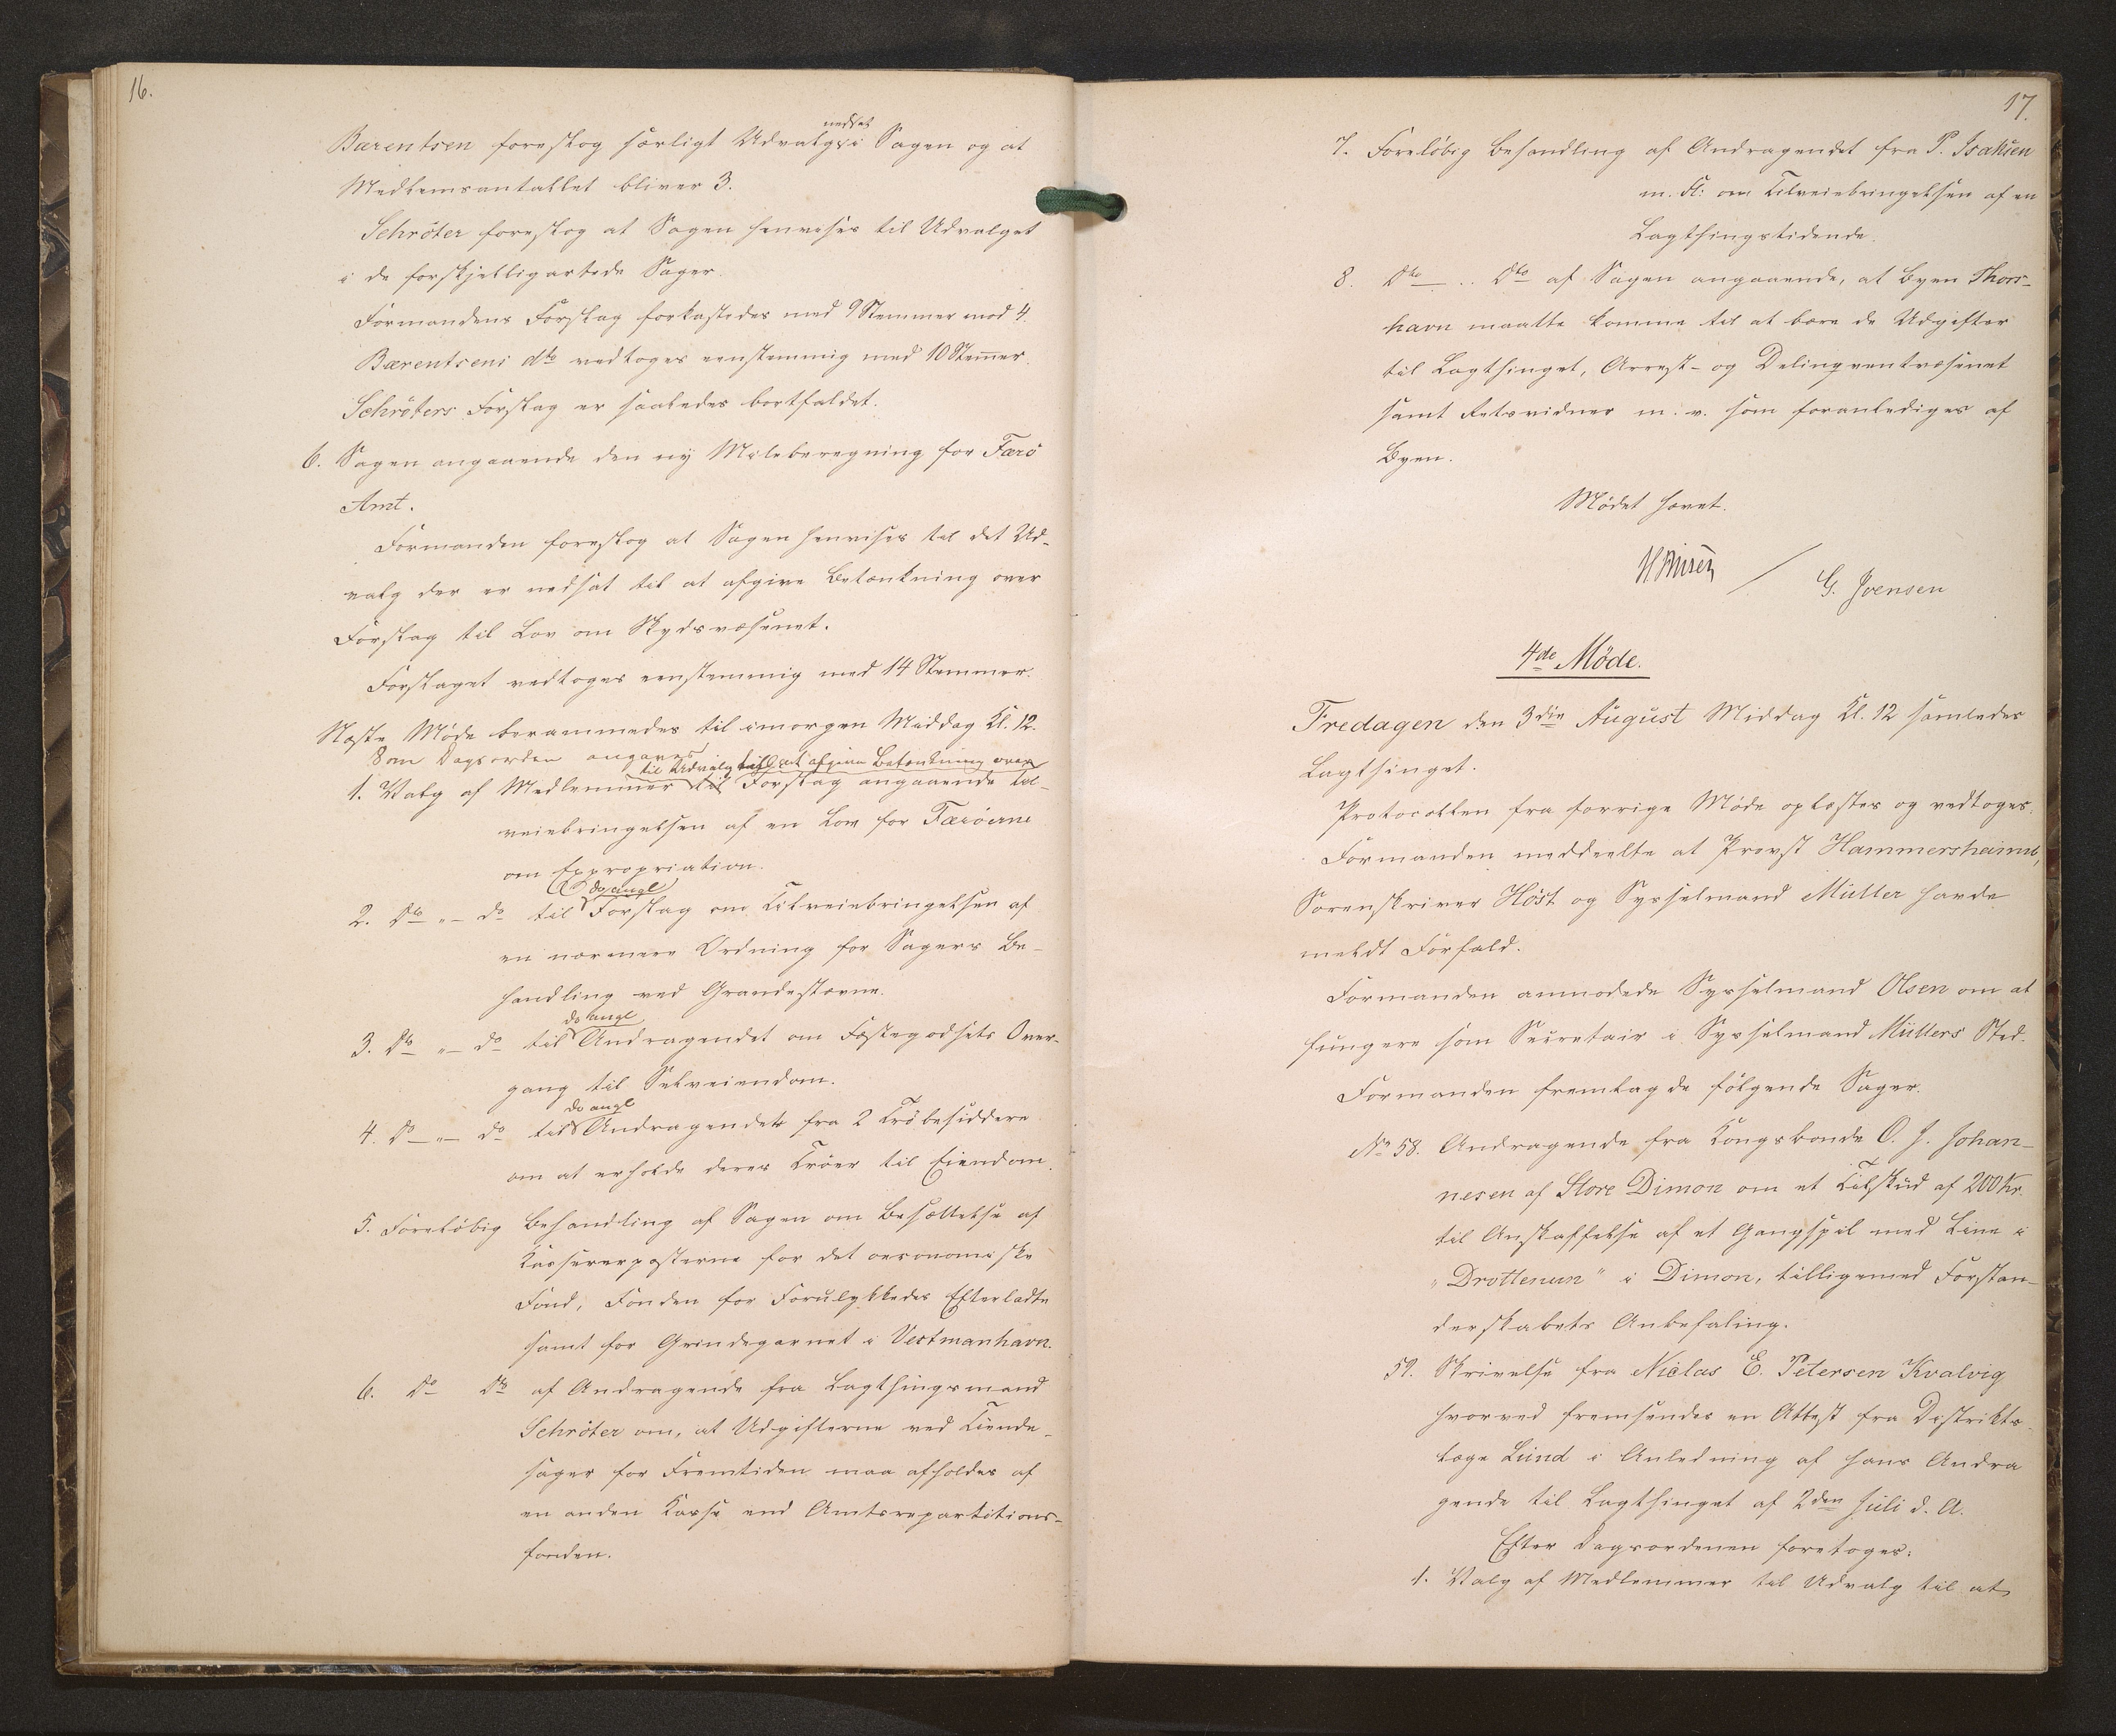 16.
nedsat
Bærentsen foreslog særligt Udvalg i Sagen og at
Medlemsantallet bliver 3.
Schröter foreslog at Sagen henvises til Udvalget
i de forskjelligartede Sager.
Formandens Forslag forkastedes med 9 Stemmer mod 4.
Bærentsens dto vedtoges eenstemmig med 10 Stemmer.
Schröters Forslag er saaledes bortfaldet.
6. Sagen angaaende den ny Mileberegning for Færö
Amt.
Formanden foreslog at Sagen henvises til det Ud-
valg der er nedsat til at afgive Betænkning over
Forslag til Lov om Skydsvæsenet.
Forslaget vedtoges eenstemmig med 14 Stemmer.
Næste Møde berammedes til imorgen Middag Kl. 12.
Som Dagsorden angaves
til Udvalg til at afgive Betænkning over
1. Valg af Medlemmer til Forslag angaaende Til-
veiebringelsen af en Lov for Færöerne
om Expropriation.
do angl
2. Dto "- do til Forslag om Tilveiebringelsen af
en nærmere Ordning for Sagers Be-
handling ved Grandestævne.
do angl
3. Dto "- do til Andragendet om Fæstegodsets Over-
gang til Selveiendom.
do angl
4. Do "- do til Andragendet fra 2 Tröbesiddere
om at erholde deres Tröer til Eiendom.
5. Foreløbig Behandling af Sagen om Besættelse af
Kassererposterne for det oeconomiske
Fond, Fonden for Forulykkedes Efterladte
samt for Grindegarnet i Vestmanhavn.
6. Do Do af Andragende fra Lagthingsmand
Schröter om, at Udgifterne ved Tiende-
sager for Fremtiden maa afholdes af
en anden Kasse end Amtsrepartitions-
fonden.
17.
7. Foreløbig Behandling af Andragendet fra P. Isaksen
m. Fl: om Tilveiebringelsen af en
Lagthingstidende.
8. Dto - .. Dto af Sagen angaaende, at Byen Thors-
havn maatte komme til at bære de Udgifter
til Lagthinget, Arrest- og Delinqventvæsenet
samt Retsvidner m. v. som foranlediges af
Byen.
Mødet hævet.
/ G. Joensen
4de Møde.
Fredagen den 3die August Middag Kl. 12 samledes
Lagthinget.
Protocollen fra forrige Møde oplæstes og vedtoges.
Formanden meddeelte at Provst Hammershaimb,
Sorenskriver Höst og Sysselmand Müller havde
meldt Forfald.
Formanden anmodede Sysselmand Olsen om at
fungere som Secretair i Sysselmand Müllers Sted.
Formanden fremlagde følgende Sager.
No 58. Andragende fra Kongsbonde O. J. Johan-
nesen af Store Dimon om et Tilskud af 200 Kr.
til Anskaffelse af et Gangspil med Line i
"Drottenun" i Dimon, tilligemed Forstan-
derskabets Anbefaling.
59. Skrivelse fra Niclas E. Petersen Kvalvig
hvorved fremsendes en Attest fra Distrikts-
læge Lund i Anledning af hans Andra
gende til Lagthinget af 2den Juli d. A.
Efter Dagsordenen foretoges:
1. Valg af Medlemmer til Udvalg til at